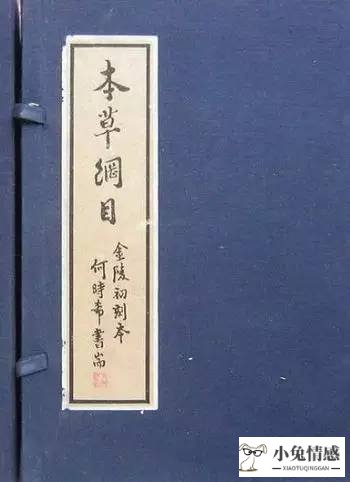 本草綱目
金陵初刻本
何時希書耑
小兔情感
XIAOTUQINGGAN